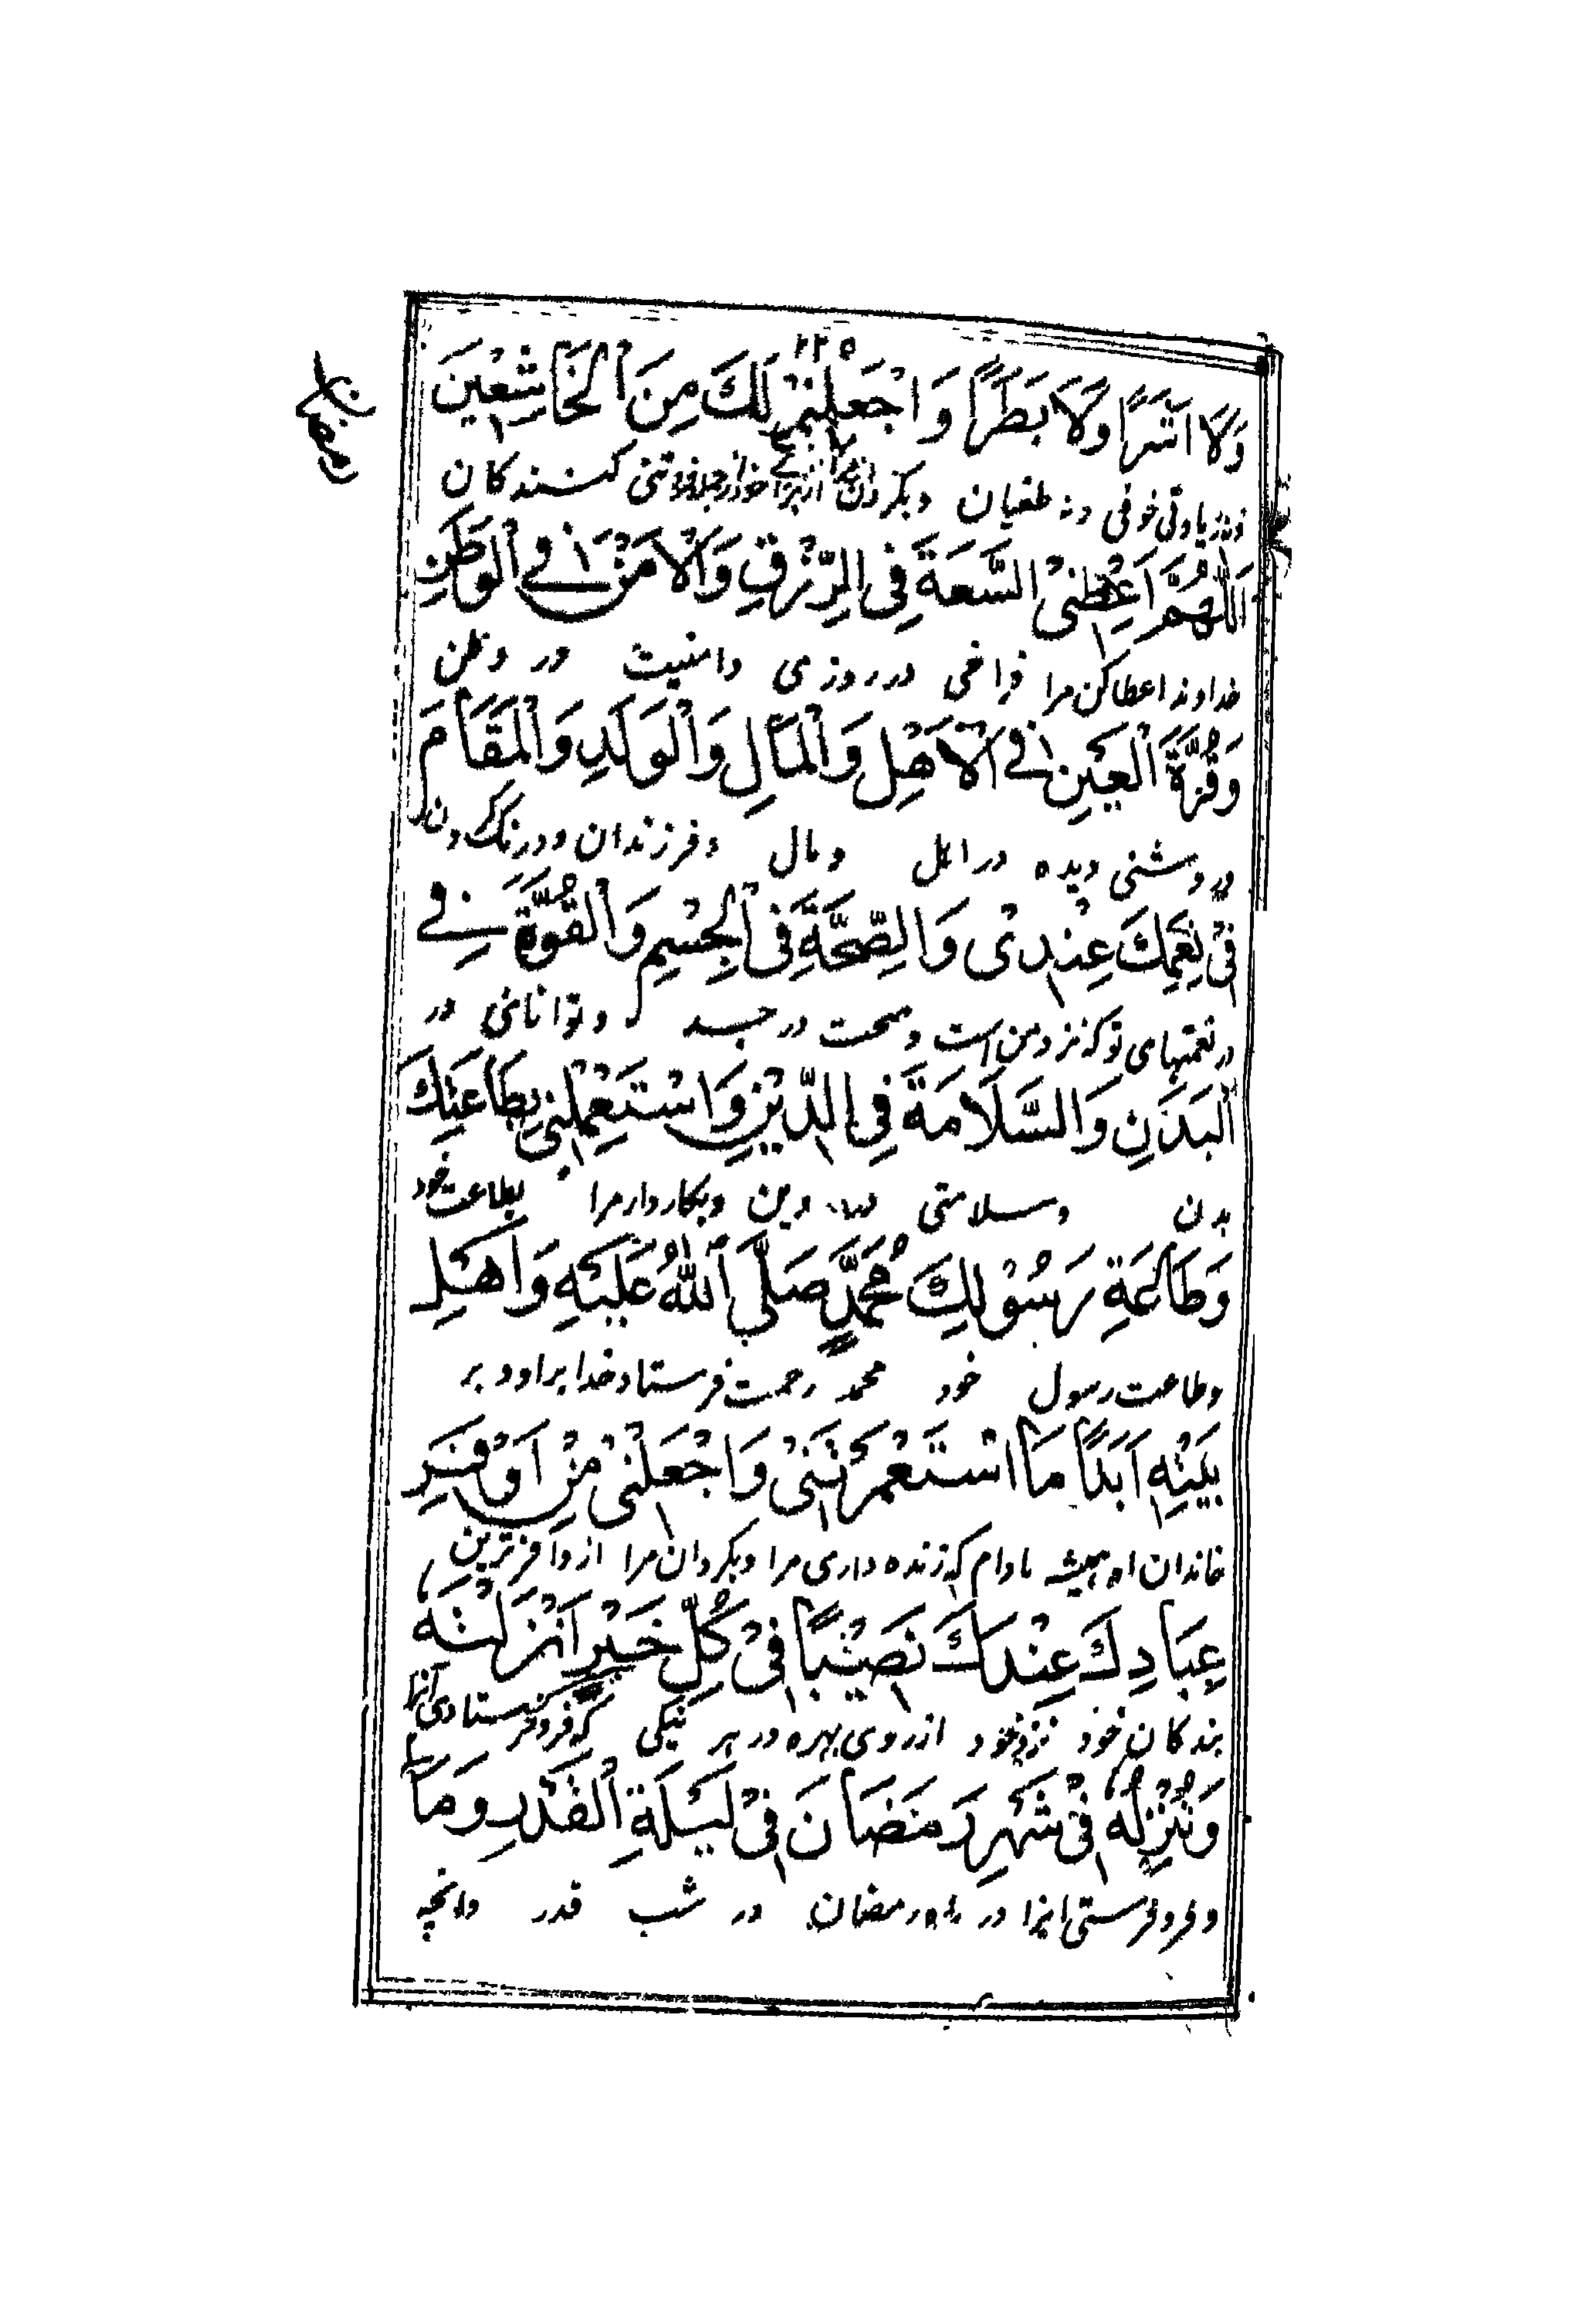 ٢٢٥
وَلَا اَشَرًا وَلَا بَطَرًا وَاجْعَلْنِىْ لَكَ مِنَ الْخَاشِعْينَ
رمضان
ونه زیادتی خوفی ونه طغیان وبگردان مرا از برای خود از جمله فروتنی کنندکان
اَللّٰهُمَّ اَعْطِنىْ السَّعَةَ فِى الرِّزْقِ وَالْاَمْنَ فِى الْوَطَنِ
خداوندا عطاکن مرا فراخی در روزی وامنیت در وطن
وَقُرَّةَ الْعَيْنِ فِى الْاَهْلِ وَالْمَالِ وَالْوَلَدِ وَالْمَقَامَ
وروشنی دیده در اهل ومال وفرزندان ودرنگ کردن
فىْ نِعَمِكَ عِنْدىْ وَالصِّحَّةَ فِى الْجِسْمِ وَالْقُوَّةَ فِى
در نعمتهای تو که نزد من است وصحت در جسد وتوانائی در
الْبَدَنِ وَالسَّلَامَةَ فِى الدّيْنِ وَاسْتَعْمِلْنى بِطَاعَتِكَ
بدن وسلامتی در دین وبکار دار مرا بطاعت خود
وَطَاعَةِ رَسُوْلِكَ مُحَمَّدٍ صَلَّى اللهُ عَلَيْهِ وَاَهْلِ
وطاعت رسول خود محمد رحمت فرستاد خدا براو وبر
بَيْتِهِ اَبَدًا مَا اسْتَعْمَرْتَنىْ وَاجْعَلْنىْ مِنْ اَوْفَرِ
خاندان او همیشه مادام که زنده داری مرا وبگردان مرا از وافرترین
عِبَادِكَ عِنْدَكَ نَصيْبًا فىْ كُلِّ خَيْرٍ اَنْزَلْتَهُ
بندکان خود نزد خود از روی بهره در هر نیکی که فرو فرستادی آنرا
وَتُنْزِلُهُ فىْ شَهْرِ رَمَضَانَ فىْ لَيْلَةِ الْقَدْرِ وَمَا
وفرو فرستی انرا در ماه رمضان در شب قدر وانچه